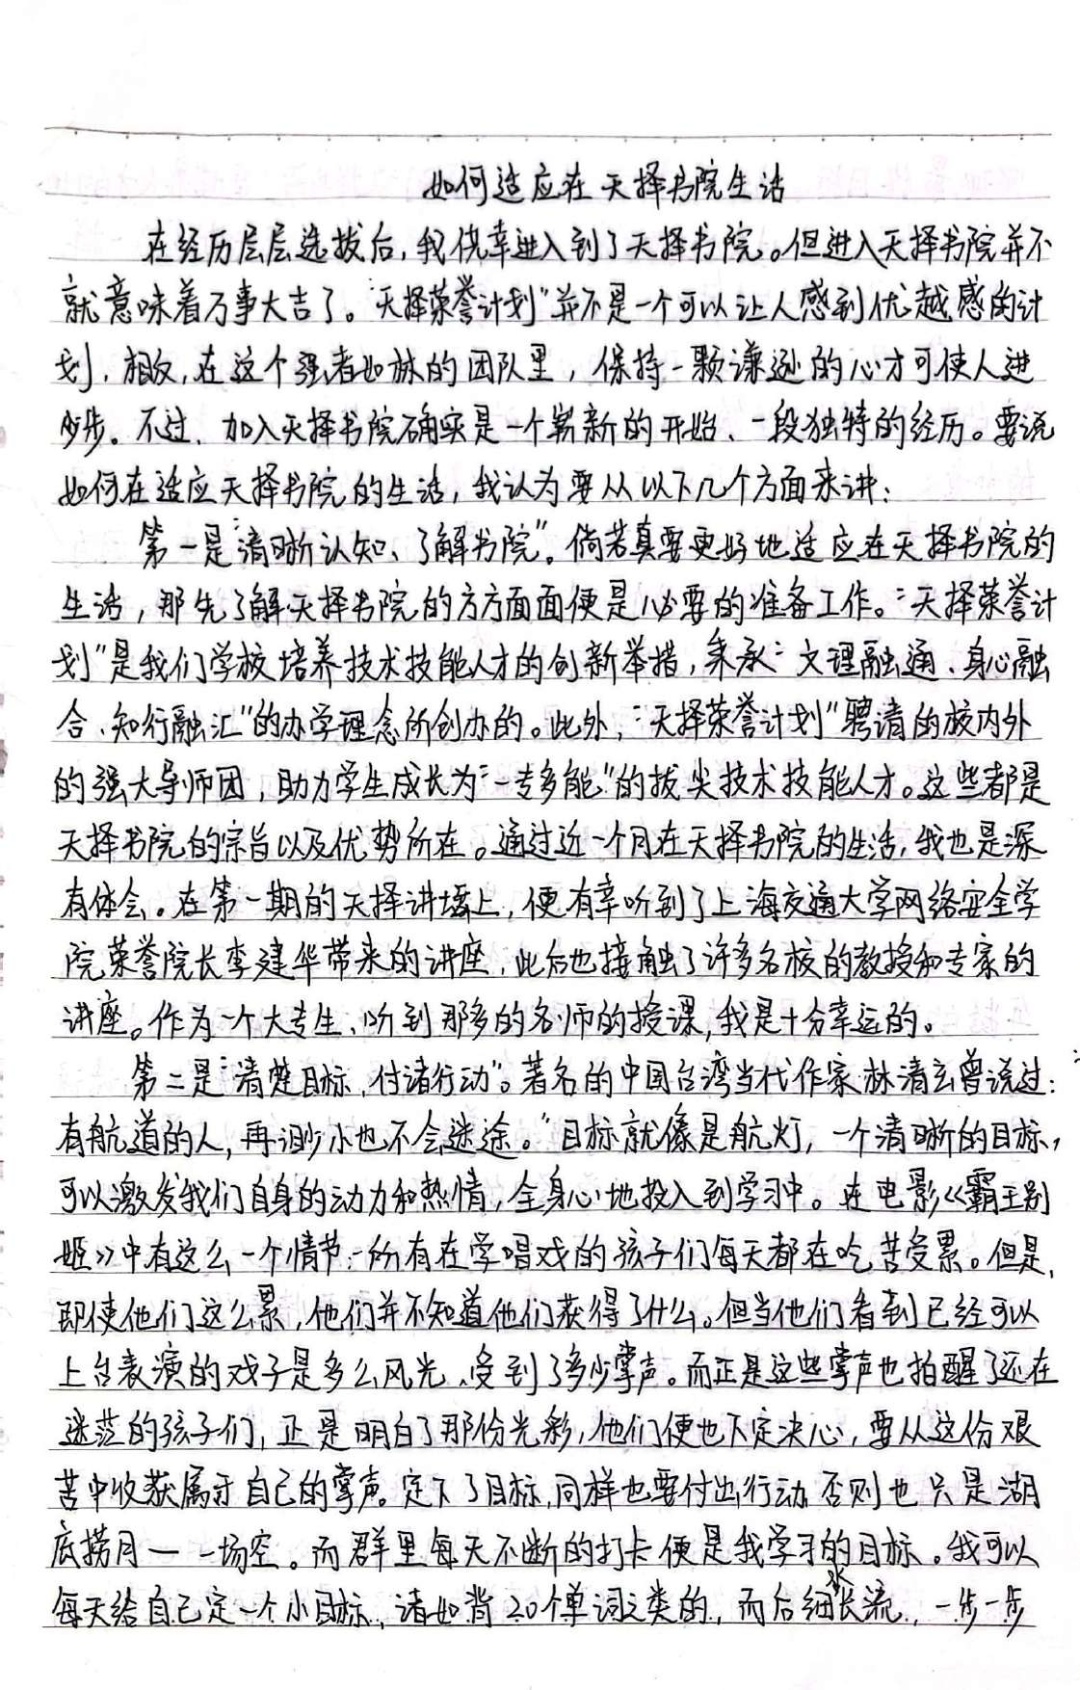 如何适应在天择书院生活
在经历层层选拔后,我侥幸进入到了天择书院。但进入天择书院并不
就意味着万事大吉了。“天择荣誉计划”并不是一个可以让人感到优越感的计
划,相反,在这个强者如林的团队里,保持一颗谦逊的心才可使人进
步。不过,加入天择书院确实是一个崭新的开始、一段独特的经历。要说
如何在适应天择书院的生活,我认为要从以下几个方面来讲:
第一是“清晰认知、了解书院”。倘若真要更好地适应在天择书院的
生活,那先了解天择书院的方方面面便是必要的准备工作。“天择荣誉计
划”是我们学校培养技术技能人才的创新举措,秉承“文理融通、身心融
合、知行融汇”的办学理念所创办的。此外,“天择荣誉计划”聘请的校内外
的强大导师团,助力学生成长为“一专多能”的拔尖技术技能人才。这些都是
天择书院的宗旨以及优势所在。通过近一个月在天择书院的生活,我也是深
有体会。在第一期的天择讲坛上,便有幸听到了上海交通大学网络安全学
院荣誉院长李建华带来的讲座,此后也接触了许多名校的教授和专家的
讲座。作为一个大专生、听到那多的名师的授课,我是十分幸运的。
第二是“清楚目标、付诸行动”。著名的中国台湾当代作家林清玄曾说过:
有航道的人,再渺小也不会迷途。“目标就像是航灯,一个清晰的目标,
可以激发我们自身的动力和热情,全身心地投入到学习中。在电影《霸王别
姬》中有这么一个情节:所有在学唱戏的孩子们每天都在吃苦受累。但是,
即使他们这么累,他们并不知道他们获得了什么。但当他们看到已经可以
上台表演的戏子是多么风光、受到了多少掌声。而正是这些掌声也拍醒了还在
迷茫的孩子们,正是明白了那份光彩,他们便也下定决心,要从这份艰
苦中收获属于自己的掌声。定下了目标,同样也要付出行动,否则也只是湖
底捞月一一场空。而群里每天不断的打卡便是我学习的目标。我可以
每天给自己定一个小目标,诸如背20个单词之类的,而后细水长流,一步一步